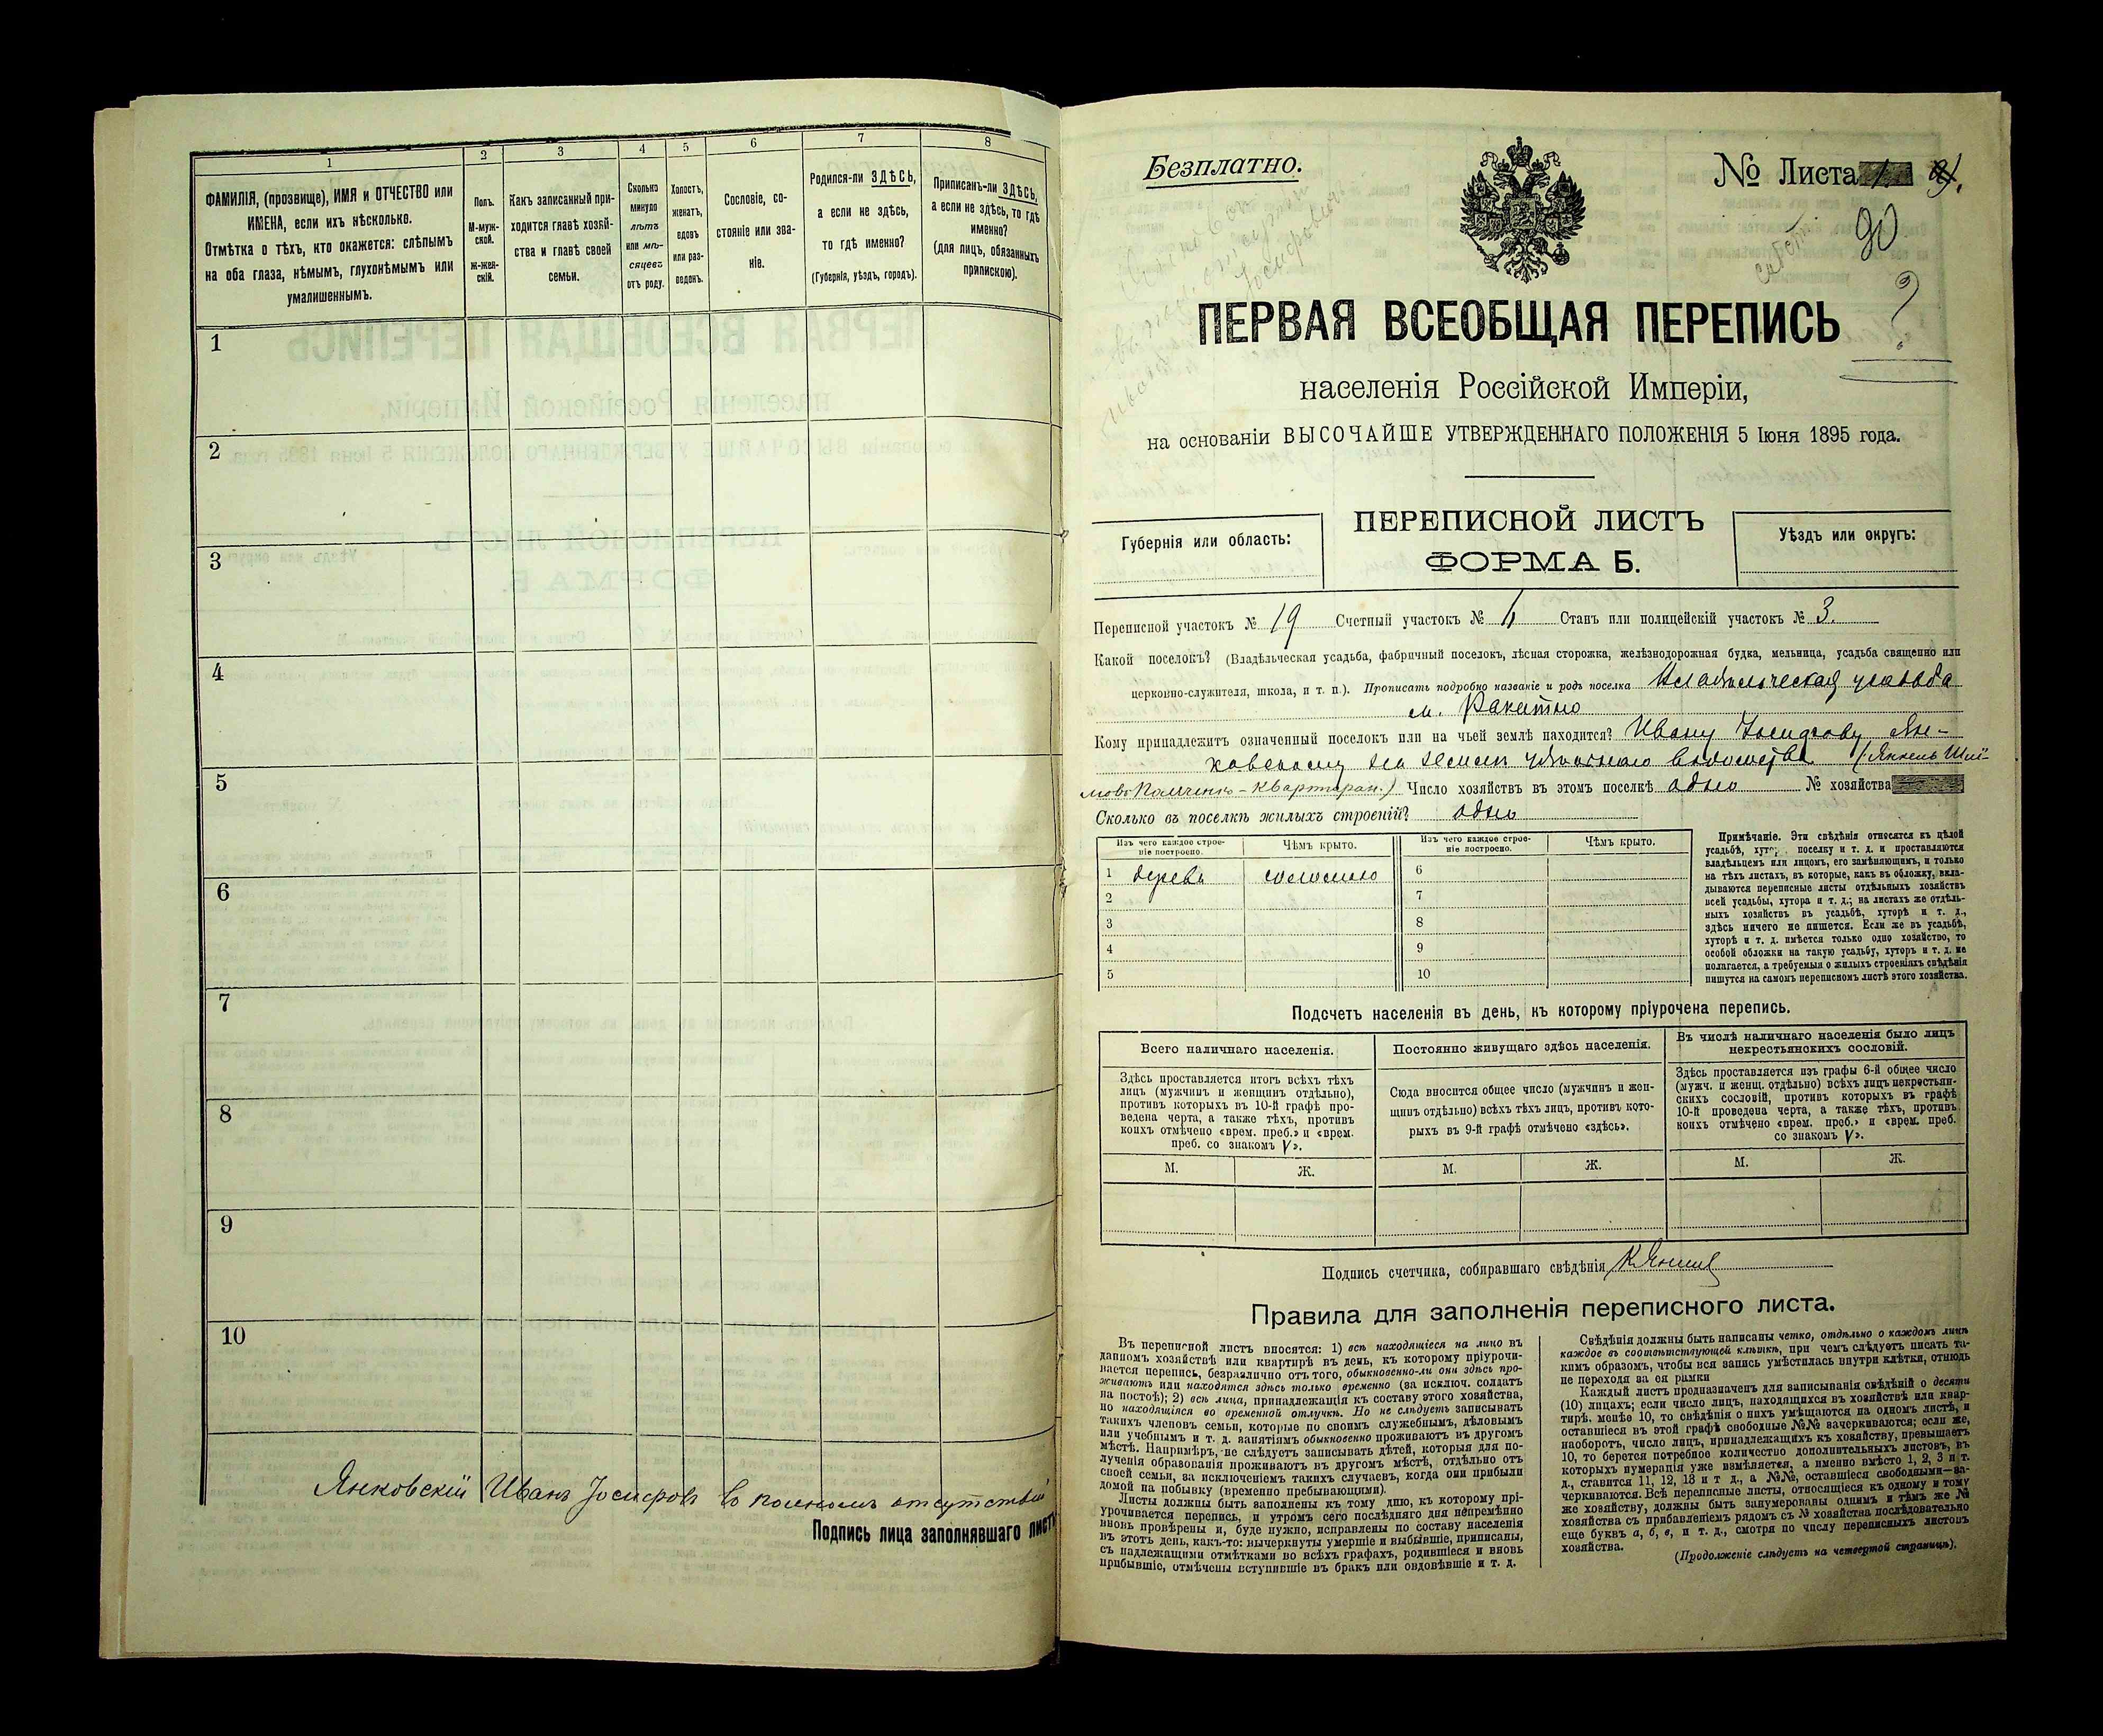 1
2
3
4
5
6
7
8
ФАМИЛІЯ, (прозвище), ИМЯ и ОТЧЕСТВО или
ИМЕНА, если ихъ нѣсколько.
Отмѣтка о тѣхъ, кто окажется: слѣпымъ
на оба глаза, нѣмымъ, глухонѣмымъ или
умалишеннымъ.
Полъ.
М-муж-
ской.
ж-жен-
скій.
Какъ записанный при-
ходится главѣ хозяй-
ства и главѣ своей
семьи.
Сколько
минуло
лѣтъ
или мѣ-
сяцевъ
отъ роду.
Холостъ,
женатъ,
вдовъ
или раз-
веденъ.
Сословіе, со-
стояніе или зва-
ніе.
Родился-ли ЗДѢСЬ,
а если не здѣсь,
то гдѣ именно?
(Губернія, уѣздъ, городъ).
Приписанъ-ли ЗДѢСЬ,
а если не здѣсь, то гдѣ
именно?
(для лицъ, обязанныхъ
припискою).
1
2
3
4
5
6
7
8
9
10
Янковскій Иванъ Іосифовъ въ полномъ отсутствіи
Подпись лица заполнявшаго листъ
Безплатно.
№ Листа
90
?
ПЕРВАЯ ВСЕОБЩАЯ ПЕРЕПИСЬ
населенія Россійской Имперіи,
на основаніи ВЫСОЧАЙШЕ УТВЕРЖДЕННАГО ПОЛОЖЕНІЯ 5 Іюня 1895 года.
ПЕРЕПИСНОЙ ЛИСТЪ
ФОРМА Б.
Губернія или область:
Уѣздъ или округъ:
Переписной участокъ № 19 Счетный участокъ № Станъ или полицейскій участокъ № 3.
Какой поселокъ? (Владѣльческая усадьба, фабричный поселокъ, лѣсная сторожка, желѣзнодорожная будка, мельница, усадьба священно или
церковно-служителя, школа, и т. п.). Прописать подробно названіе и родъ поселка Владѣльческая усадьба
м. Ракитно
Кому принадлежитъ означенный поселокъ или на чьей землѣ находится? Ивану Іосифову Ян-
ковскому на земли удѣльнаго вѣдомства
Число хозяйствъ въ этомъ поселкѣ одно № хозяйства
Сколько въ поселкѣ жилыхъ строеній? одно
Изъ чего каждое строе-
ніе построено.
Чѣмъ крыто.
Изъ чего каждое строе-
ніе построено.
Чѣмъ крыто.
1 дерева соломою 6
2 7
3 8
4 9
5 10
Примѣчаніе. Эти свѣдѣнія относятся къ цѣлой
усадьбѣ, хутору, поселку и т. д. и проставляются
владѣльцемъ или лицомъ, его замѣняющимъ, и только
на тѣхъ листахъ, въ которые, какъ въ обложку, вкла-
дываются переписные листы отдѣльныхъ хозяйствъ
всей усадьбы, хутора и т. д.; на листахъ же отдѣль-
ныхъ хозяйствъ въ усадьбѣ, хуторѣ и т. д.,
здѣсь ничего не пишется. Если же въ усадьбѣ,
хуторѣ и т. д. имѣется только одно хозяйство, то
особой обложки на такую усадьбу, хуторъ и т. д. не
полагается, а требуемыя о жилыхъ строеніяхъ свѣдѣнія
пишутся на самомъ переписномъ листѣ этого хозяйства.
Подсчетъ населенія въ день, къ которому пріурочена перепись.
Всего наличнаго населенія.
Здѣсь проставляется итогъ всѣхъ тѣхъ
лицъ (мужчинъ и женщинъ отдѣльно),
противъ которыхъ въ 10-й графѣ про-
ведена черта, а также тѣхъ, противъ
коихъ отмѣчено «врем. преб.» и «врем.
преб. со знакомъ V».
Постоянно живущаго здѣсь населенія.
Сюда вносится общее число (мужчинъ и жен-
щинъ отдѣльно) всѣхъ тѣхъ лицъ, противъ кото-
рыхъ въ 9-й графѣ отмѣчено «здѣсь».
Въ числѣ наличнаго населенія было лицъ
некрестьянскихъ сословій.
Здѣсь проставляется изъ графы 6-й общее число
(мужч. и женщ. отдѣльно) всѣхъ лицъ некрестьян-
скихъ сословій, противъ которыхъ въ графѣ
10-й проведена черта, а также тѣхъ, противъ
коихъ отмѣчено «врем. преб.» и «врем. преб.
со знакомъ V».
М. Ж. М. Ж. М. Ж.
Подпись счетчика, собиравшаго свѣдѣнія
Правила для заполненія переписного листа.
Въ переписной листъ вносятся: 1) всѣ находящіеся на лицо въ
данномъ хозяйствѣ или квартирѣ въ день, къ которому пріурочи-
вается перепись, безразлично отъ того, обыкновенно-ли они здѣсь про-
живаютъ или находятся здѣсь только временно (за исключ. солдатъ
на постоѣ); 2) всѣ лица, принадлежащія къ составу этого хозяйства,
но находящіяся во временной отлучкѣ. Но не слѣдуетъ записывать
такихъ членовъ семьи, которые по своимъ служебнымъ, дѣловымъ
или учебнымъ и т. д. занятіямъ обыкновенно проживаютъ въ другомъ
мѣстѣ. Напримѣръ, не слѣдуетъ записывать дѣтей, которыя для по-
лученія образованія проживаютъ въ другомъ мѣстѣ, отдѣльно отъ
своей семьи, за исключеніемъ такихъ случаевъ, когда они прибыли
домой на побывку (временно пребывающими).
Листы должны быть заполнены къ тому дню, къ которому прі-
урочивается перепись, и утромъ сего послѣдняго дня непремѣнно
вновь провѣрены и, буде нужно, исправлены по составу населенія
въ этотъ день, какъ-то: вычеркнуты умершіе и выбывшіе, приписаны,
съ надлежащими отмѣтками во всѣхъ графахъ, родившіеся и вновь
прибывшіе, отмѣчены вступившіе въ бракъ или овдовѣвшіе и т. д.
Свѣдѣнія должны быть написаны четко, отдѣльно о каждомъ лицѣ
каждое въ соотвѣтствующей клѣткѣ, при чемъ слѣдуетъ писать та-
кимъ образомъ, чтобы вся запись умѣстилась внутри клѣтки, отнюдь
не переходя за ея рамки
Каждый листъ предназначенъ для записыванія свѣдѣній о десяти
(10) лицахъ; если число лицъ, находящихся въ хозяйствѣ или квар-
тирѣ, менѣе 10, то свѣдѣнія о нихъ умѣщаются на одномъ листѣ, и
оставшіеся въ этой графѣ свободные №№ зачеркиваются; если же,
наоборотъ, число лицъ, принадлежащихъ къ хозяйству, превышаетъ
10, то берется потребное количество дополнительныхъ листовъ, въ
которыхъ нумерація уже измѣняется, а именно вмѣсто 1, 2, 3 и т.
д., ставится 11, 12, 13 и т д., а №№, оставшіеся свободными—за-
черкиваются. Всѣ переписные листы, относящіеся къ одному и тому
же хозяйству, должны быть занумерованы однимъ и тѣмъ же №
хозяйства съ прибавленіемъ рядомъ съ № хозяйства послѣдовательно
еще буквъ а, б, в, и т. д., смотря по числу переписныхъ листовъ
хозяйства.
(Продолженіе слѣдуетъ на четвертой страницѣ).